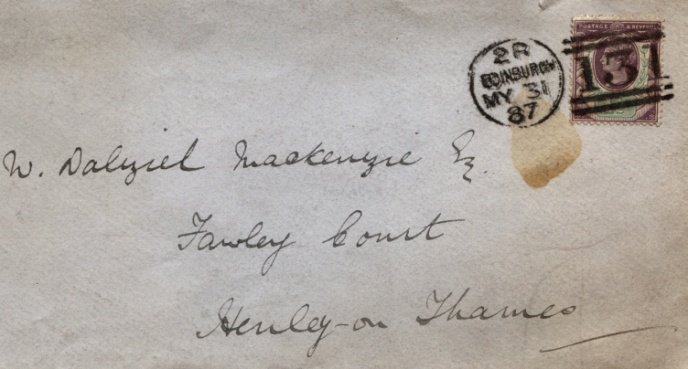 2R
EDINBURGH
MY 31
87
POSTAGE & REVENUE
131
W. Dalziel Mackenzie Esq.
Fawley Court
Henley-on Thames